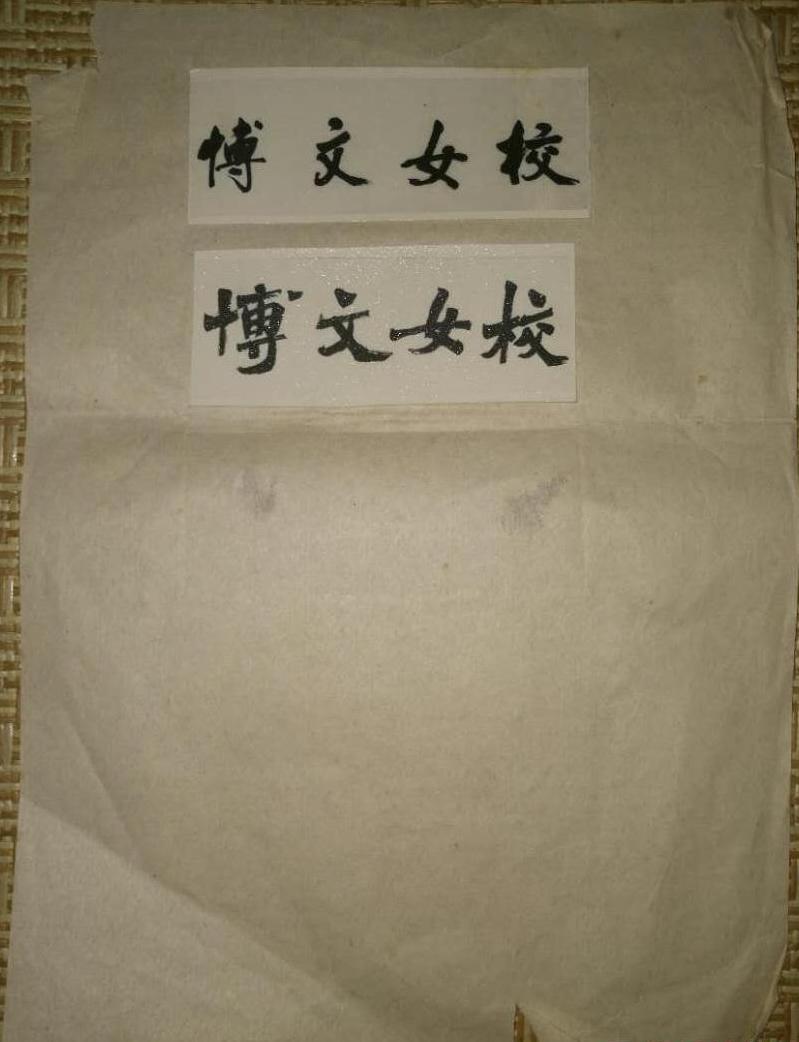 博文女校
博文女校